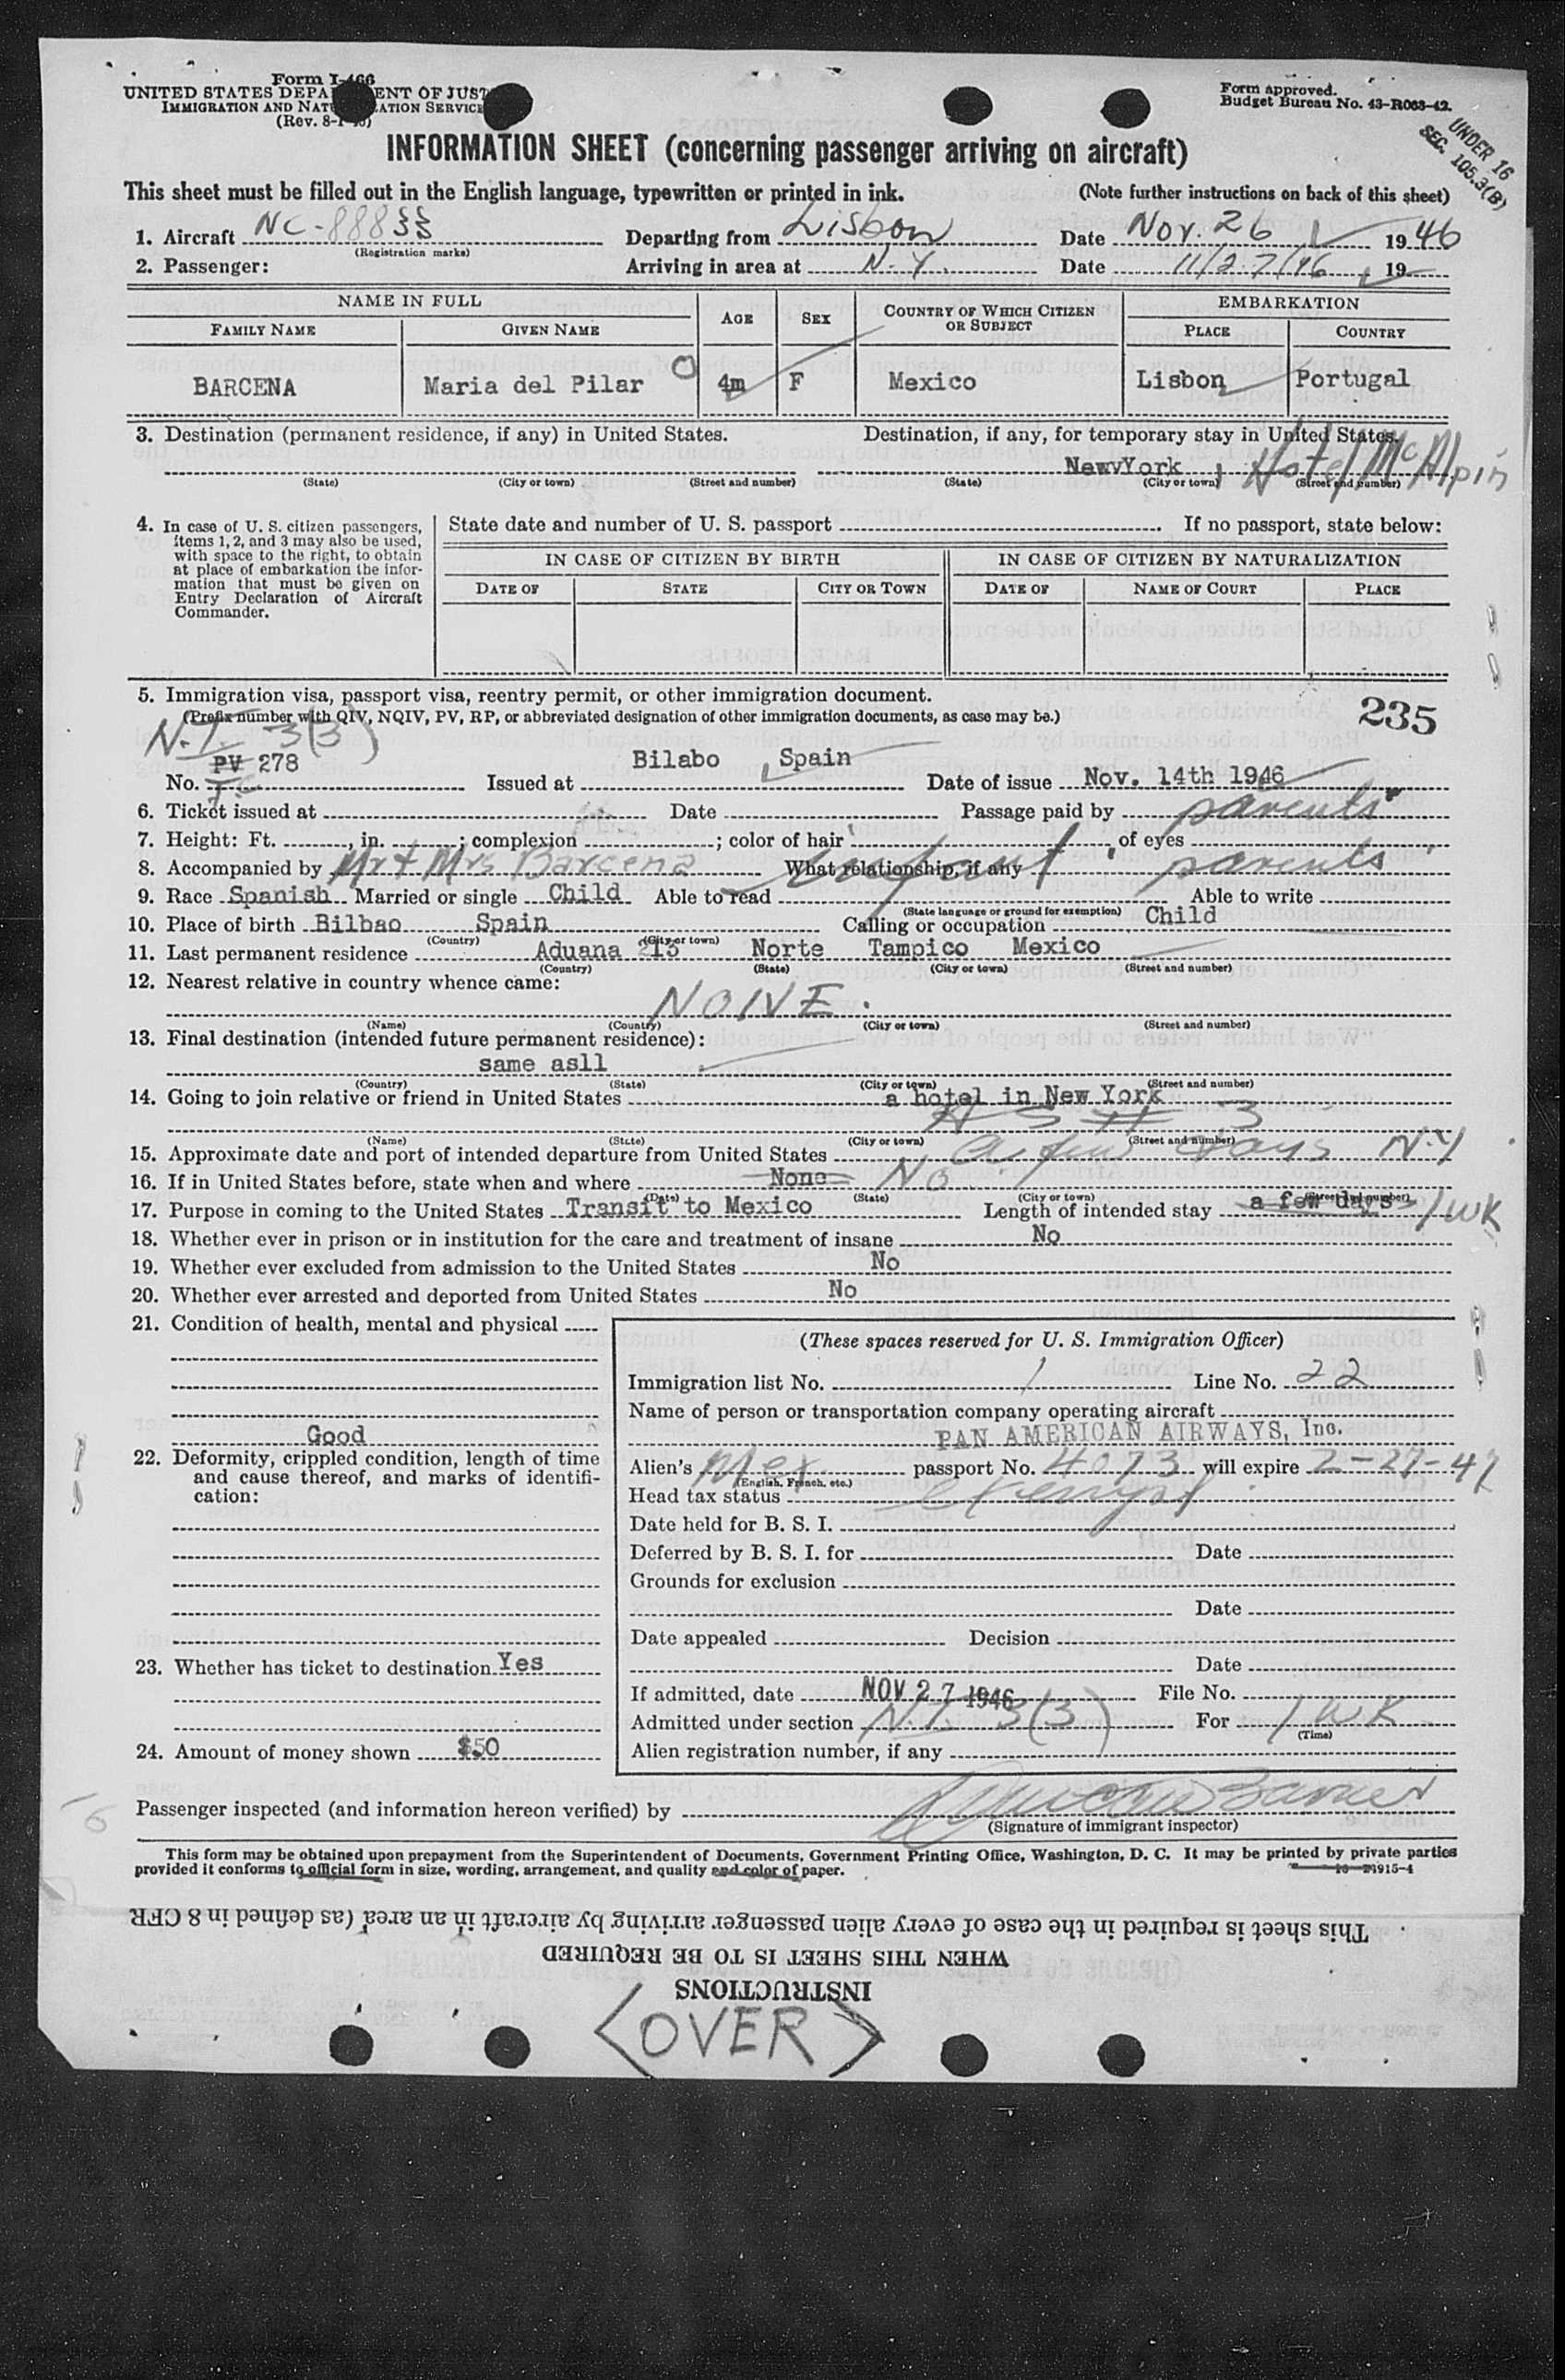 Form I-466
UNITED STATES DEPA ENT OF JUST
IMMIGRATION AND NATU ATION SERVICE
(Rev. 8-1- )
Form approved.
Budget Bureau No. 43-R063-42.
UNDER 16
SEC. 105.3(B)
INFORMATION SHEET (concerning passenger arriving on aircraft)
This sheet must be filled out in the English language, typewritten or printed in ink. (Note further instructions on back of this sheet)
1. Aircraft NC-88833 Departing from Lisbon Date Nov. 26 1946
(Registration marks)
2. Passenger: Arriving in area at N.Y. Date 11/27/46 19
NAME IN FULL AGE SEX COUNTRY OF WHICH CITIZEN OR SUBJECT EMBARKATION
FAMILY NAME GIVEN NAME PLACE COUNTRY
BARCENA Maria del Pilar 4m F Mexico Lisbon Portugal
3. Destination (permanent residence, if any) in United States. Destination, if any, for temporary stay in United States.
NewvYork , Hotel McAlpin
(State) (City or town) (Street and number) (State) (City or town) (Street and number)
4. In case of U. S. citizen passengers, items 1, 2, and 3 may also be used, with space to the right, to obtain at place of embarkation the information that must be given on Entry Declaration of Aircraft Commander.
State date and number of U. S. passport If no passport, state below:
IN CASE OF CITIZEN BY BIRTH IN CASE OF CITIZEN BY NATURALIZATION
DATE OF STATE CITY OR TOWN DATE OF NAME OF COURT PLACE
5. Immigration visa, passport visa, reentry permit, or other immigration document.
(Prefix number with QIV, NQIV, PV, RP, or abbreviated designation of other immigration documents, as case may be.)
235
N.I. 3(3)
PV 278 Bilabo Spain
No. Issued at Date of issue Nov. 14th 1946
6. Ticket issued at Date Passage paid by parents
7. Height: Ft. , in. ; complexion ; color of hair , of eyes
infant
8. Accompanied by Mr & Mrs Barcena What relationship, if any parents
9. Race Spanish Married or single Child Able to read Able to write
(State language or ground for exemption)
10. Place of birth Bilbao Spain Calling or occupation Child
(Country) (City or town)
11. Last permanent residence Aduana 213 Norte Tampico Mexico
(Country) (State) (City or town) (Street and number)
12. Nearest relative in country whence came:
NONE.
(Name) (Country) (City or town) (Street and number)
13. Final destination (intended future permanent residence):
same as11
(Country) (State) (City or town) (Street and number)
14. Going to join relative or friend in United States a hotel in New York
# 3
(Name) (State) (City or town) (Street and number)
15. Approximate date and port of intended departure from United States a few days N.Y
16. If in United States before, state when and where None No
(Date) (State) (City or town) (Street and number)
17. Purpose in coming to the United States Transit to Mexico Length of intended stay a few days 1 WK
18. Whether ever in prison or in institution for the care and treatment of insane No
19. Whether ever excluded from admission to the United States No
20. Whether ever arrested and deported from United States No
21. Condition of health, mental and physical
Good
22. Deformity, crippled condition, length of time and cause thereof, and marks of identification:
23. Whether has ticket to destination Yes
24. Amount of money shown $50
(These spaces reserved for U. S. Immigration Officer)
Immigration list No. 1 Line No. 22
Name of person or transportation company operating aircraft
PAN AMERICAN AIRWAYS, Inc.
Alien's Mex. passport No. 4073 will expire 2-27-47
(English, French, etc.)
Head tax status exempt
Date held for B. S. I.
Deferred by B. S. I. for Date
Grounds for exclusion
Date
Date appealed Decision
Date
If admitted, date NOV 27 1946 File No.
Admitted under section N.I. 3(3) For 1 WK
(Time)
Alien registration number, if any
Passenger inspected (and information hereon verified) by
(Signature of immigrant inspector)
This form may be obtained upon prepayment from the Superintendent of Documents, Government Printing Office, Washington, D. C. It may be printed by private parties
provided it conforms to official form in size, wording, arrangement, and quality and color of paper.
This sheet is required in the case of every alien passenger arriving by aircraft in an area (as defined in 8 CFR
WHEN THIS SHEET IS TO BE REQUIRED
INSTRUCTIONS
<OVER>